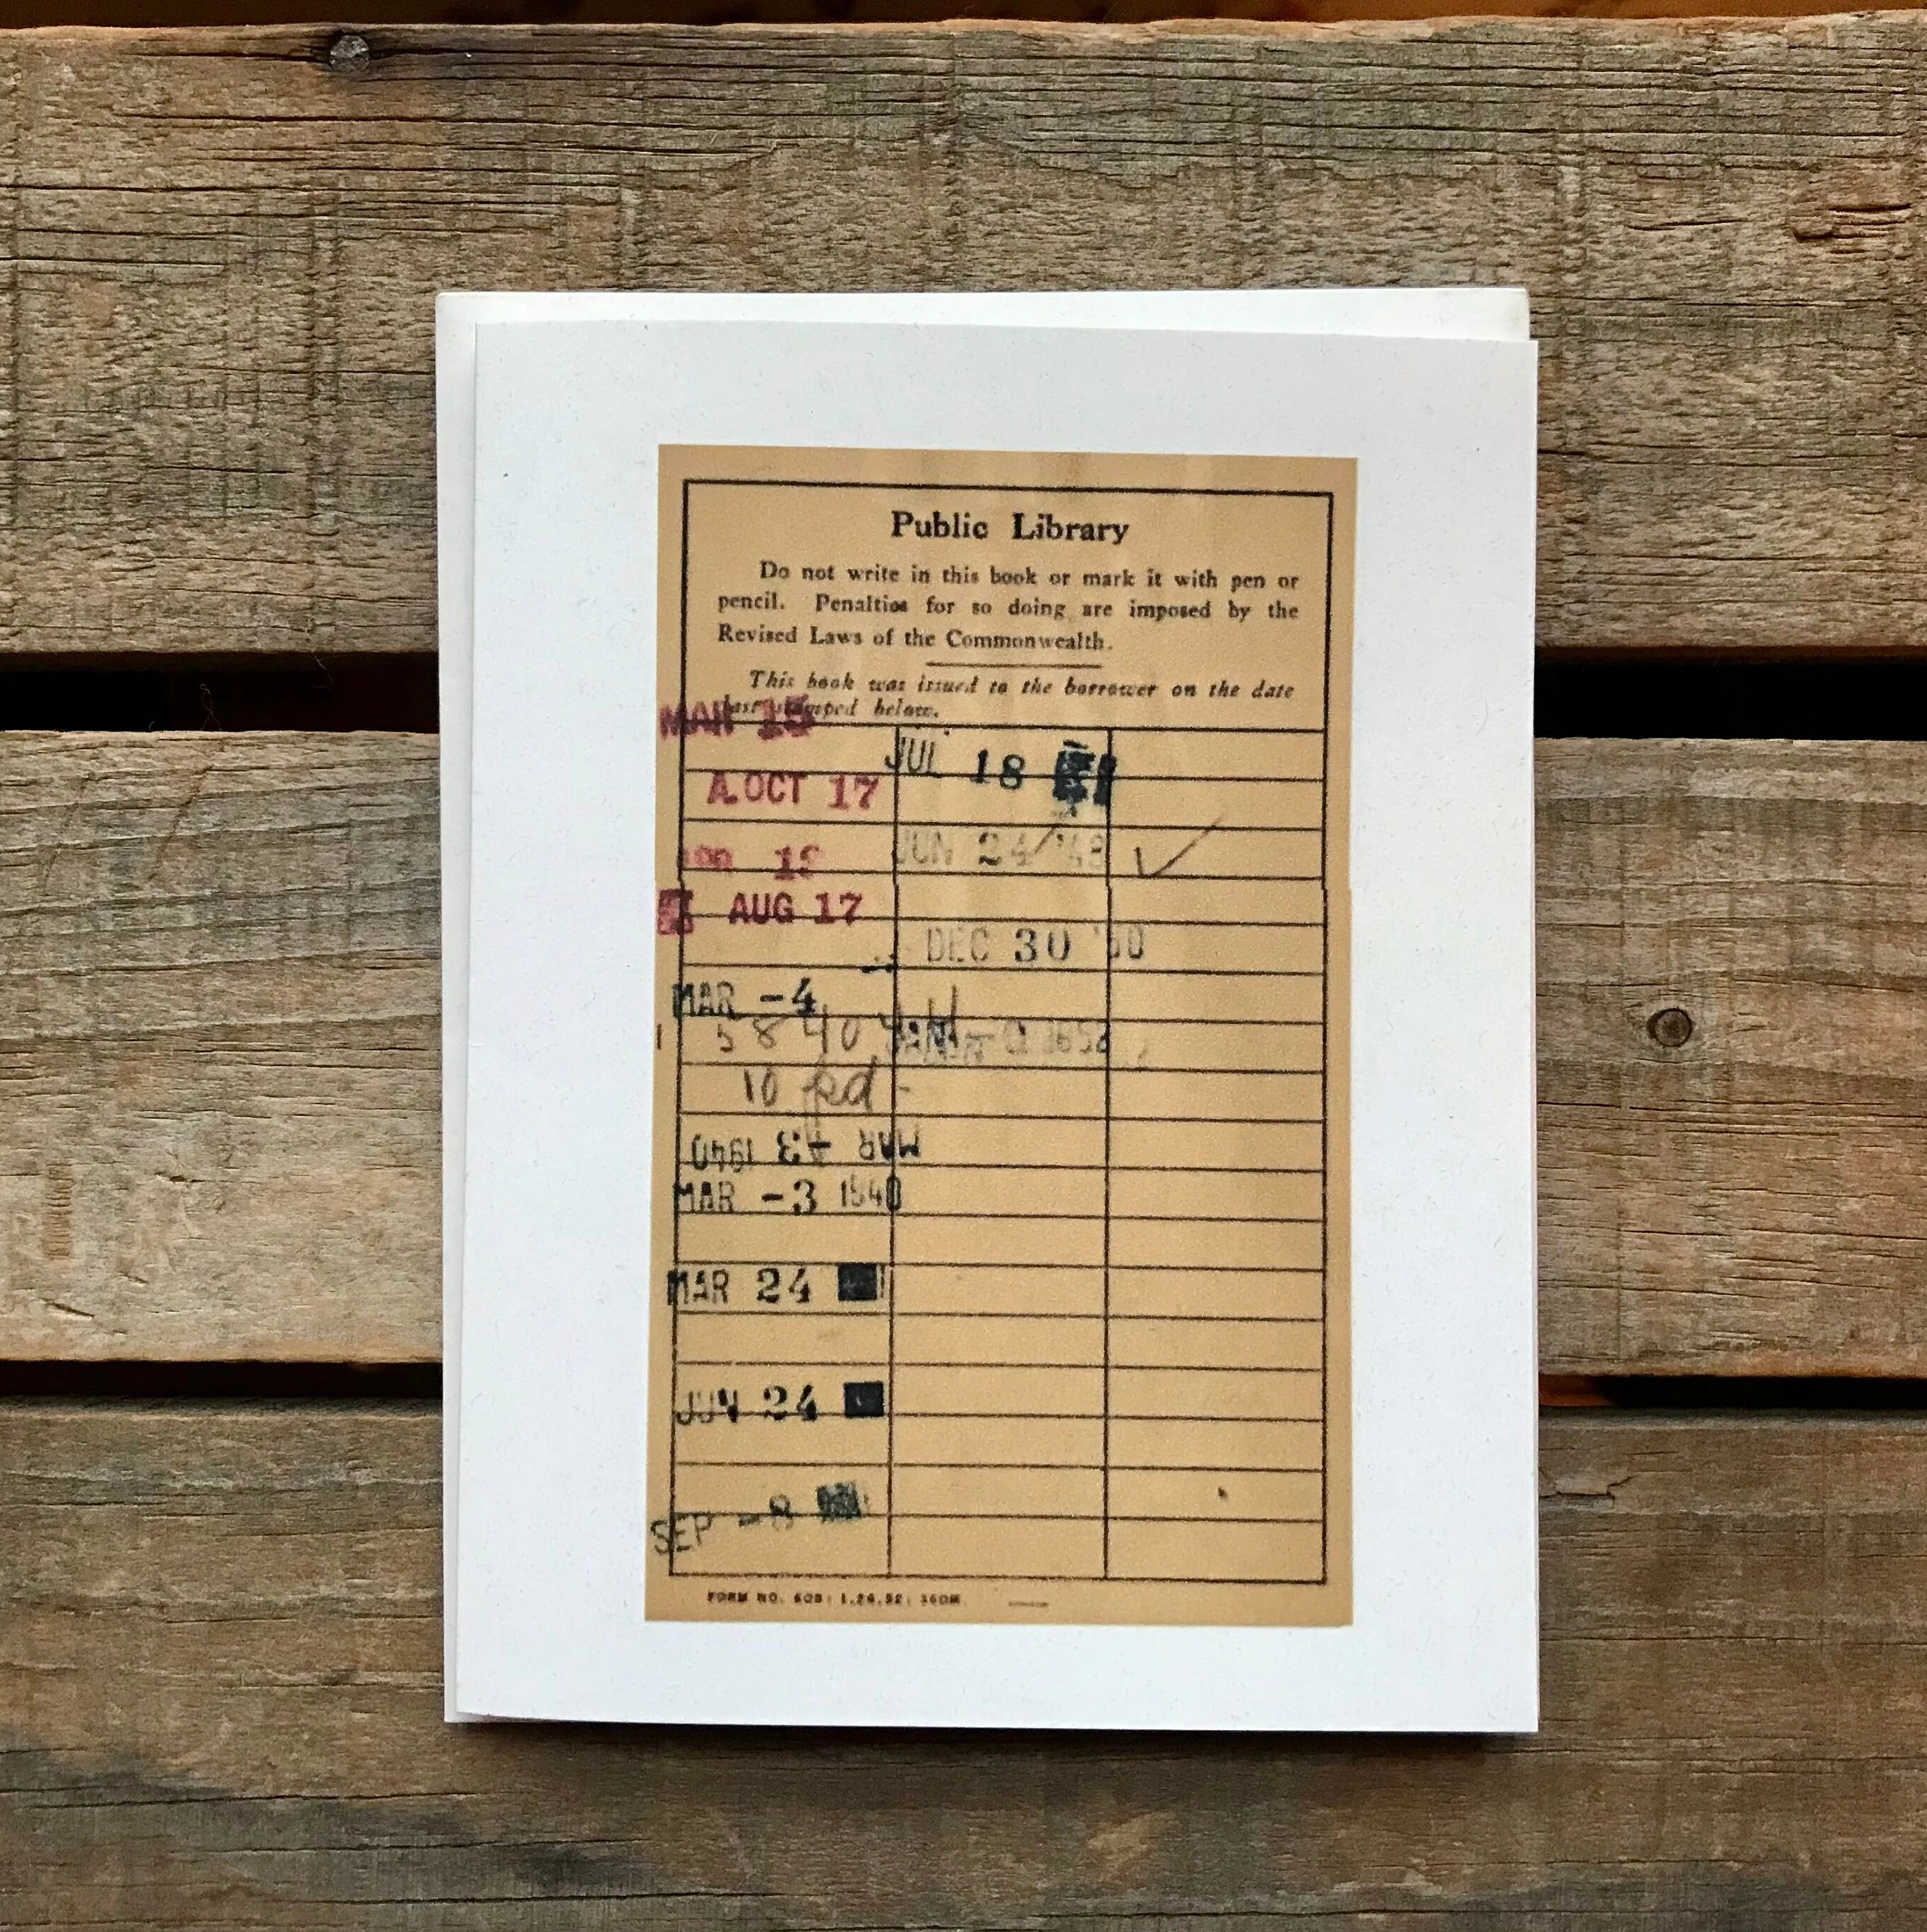 Public Library
Do not write in this book or mark it with pen or
pencil. Penalties for so doing are imposed by the
Revised Laws of the Commonwealth.
This book was issued to the borrower on the date
last stamped below.
MAR 15
A. OCT 17
AUG 17
MAR -4
5 8 40
10 pd -
MAR -3 1940
MAR -3 1940
MAR 24
JUN 24
SEP -8
JUL 18
JUN 24 '48
DEC 30
FORM NO. 1.26.32;